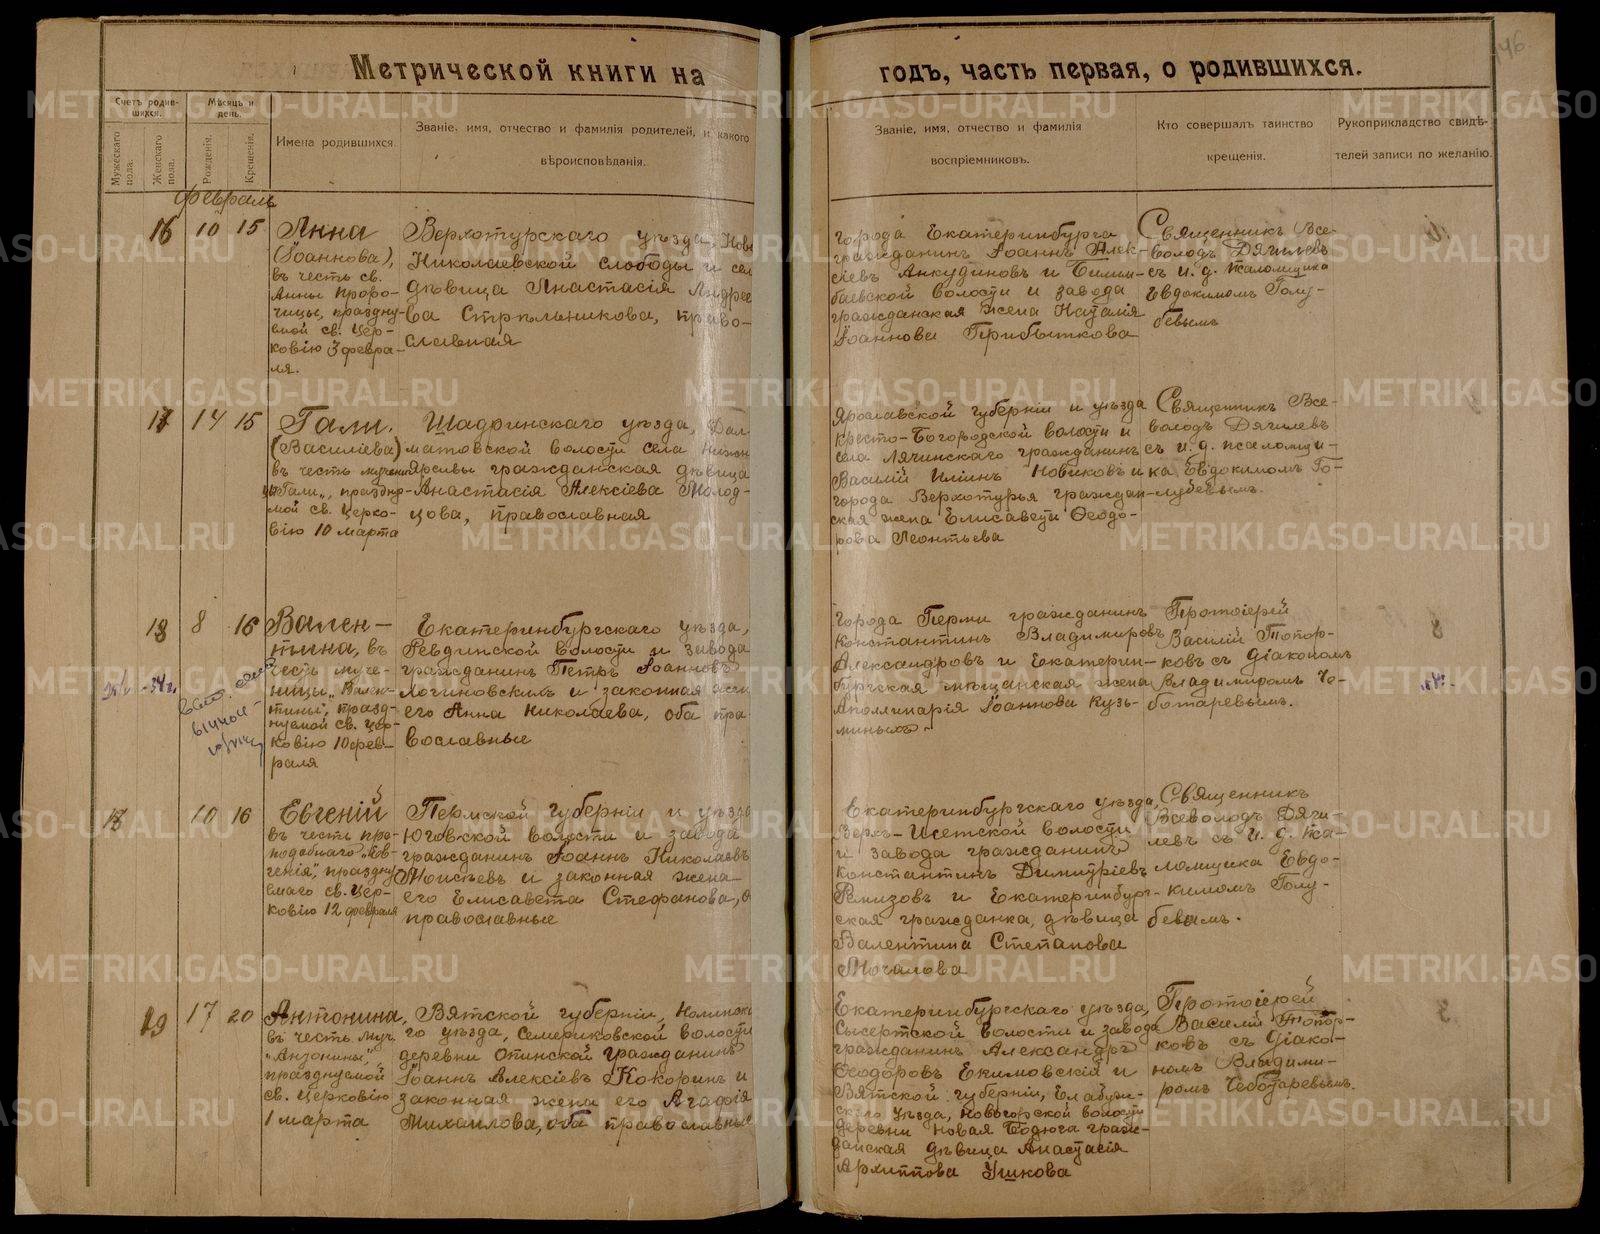 Метрической книги на
годъ, часть первая, о родившихся.
146.
Счетъ родив-
шихся.
Мѣсяцъ и
день.
Мужескаго
пола.
Женскаго
пола.
Рожденія.
Крещенія.
Имена родившихся.
Званіе, имя, отчество и фамилія родителей, и какого
вѣроисповѣданія.
Званіе, имя, отчество и фамилія
воспріемниковъ.
Кто совершалъ таинство
крещенія.
Рукоприкладство свидѣ-
телей записи по желанію.
Февраль
16 10 15
Анна
(Іоаннова),
въ честь св.
Анны проро-
чицы, праздну-
емой св. Цер-
ковію 3 февра-
ля.
Верхотурскаго уѣзда, Ново
Николаевской слободы и сел
дѣвица Анастасія Андрее
ва Стрѣльникова, право-
славная
города Екатеринбурга
гражданинъ Іоаннъ Алек-
сіевъ Анкудиновъ и Билим-
баевской волости и завода
гражданская жена Наталія
Іоаннова Прибыткова
Священникъ Все-
володъ Дягилевъ
съ и. д. псаломщика
Евдокимомъ Голу-
бевымъ
14 15
Гали.
(Василіева)
въ честь мучени
цы „Гали", праздну-
мой св. Церко-
вію 10 марта
Шадринскаго уѣзда, Дал-
матовской волости села Нижн
Ярсивы гражданская дѣвица
Анастасія Алексіева Молод-
цова, православная
Ярославской губерніи и уѣзда
Кресто-Богородской волости и
села Лячинскаго гражданинъ
Василій Иліинъ Новиковъ и
города Верхотурья граждан-
ская жена Елисавета Ѳеодо-
рова Леонтьева
Священникъ Все-
володъ Дягилевъ
съ и. д. псаломщи-
ка Евдокимомъ Го-
лубевымъ.
18 8 16
Вален-
тина, въ
честь муче-
ницы „Вален-
тины", празд-
нуемой св. Цер-
ковію 10 фев-
раля
Екатеринбургскаго уѣзда,
Ревдинской волости и завода
гражданинъ Петръ Іоанновъ
Логиновскихъ и законная жена
его Анна Николаева, оба пра
вославные
Города Перми гражданинъ
Константинъ Владиміровъ
Александровъ и Екатерин-
бургская мѣщанская жена
Аполлинарія Іоаннова Кузь-
миныхъ.
Протоіерей
Василій Топор-
ковъ съ діакономъ
Владиміромъ Че-
ботаревымъ.
10 16
Евгеній
въ честь пре-
подобнаго „Ев-
генія", праздну
емаго св. Цер-
ковію 12 февраля
Пермской губерніи и уѣзда
Юговской волости и завода
гражданинъ Іоаннъ Николаевъ
Моисеевъ и законная жена
его Елисавета Стефанова, о
православные
Екатеринбургскаго уѣзда,
Верхъ-Исетской волости
и завода гражданинъ
Константинъ Димитріевъ
Ремизовъ и Екатеринбург-
ская гражданка, дѣвица
Валентина Степанова
Мочалова
Священникъ
Всеволодъ Дяги-
левъ съ и. д. пса-
ломщика Евдо-
кимомъ Голу-
бевымъ.
19 17 20
Антонина,
въ честь муч.
„Антонины",
празднуемой
св. Церковію
1 марта
Вятской губерніи, Нолинска
го уѣзда, Семериковской волости
деревни Опинской гражданинъ
Іоаннъ Алексіевъ Кокоринъ и
законная жена его Агафія
Михаилова, оба православные
Екатеринбургскаго уѣзда,
Сысертской волости и завода
гражданинъ Александръ
Ѳеодоровъ Екимовскій и
Вятской губерніи, Елабуж-
скаго уѣзда, Новогорской волости
деревни Новая Бодюга граж-
данская дѣвица Анастасія
Архиппова Ушкова
Протоіерей
Василій Топор-
ковъ съ діако-
номъ Владими-
ромъ Чеботаревымъ.
METRIKI.GASO-URAL.RU